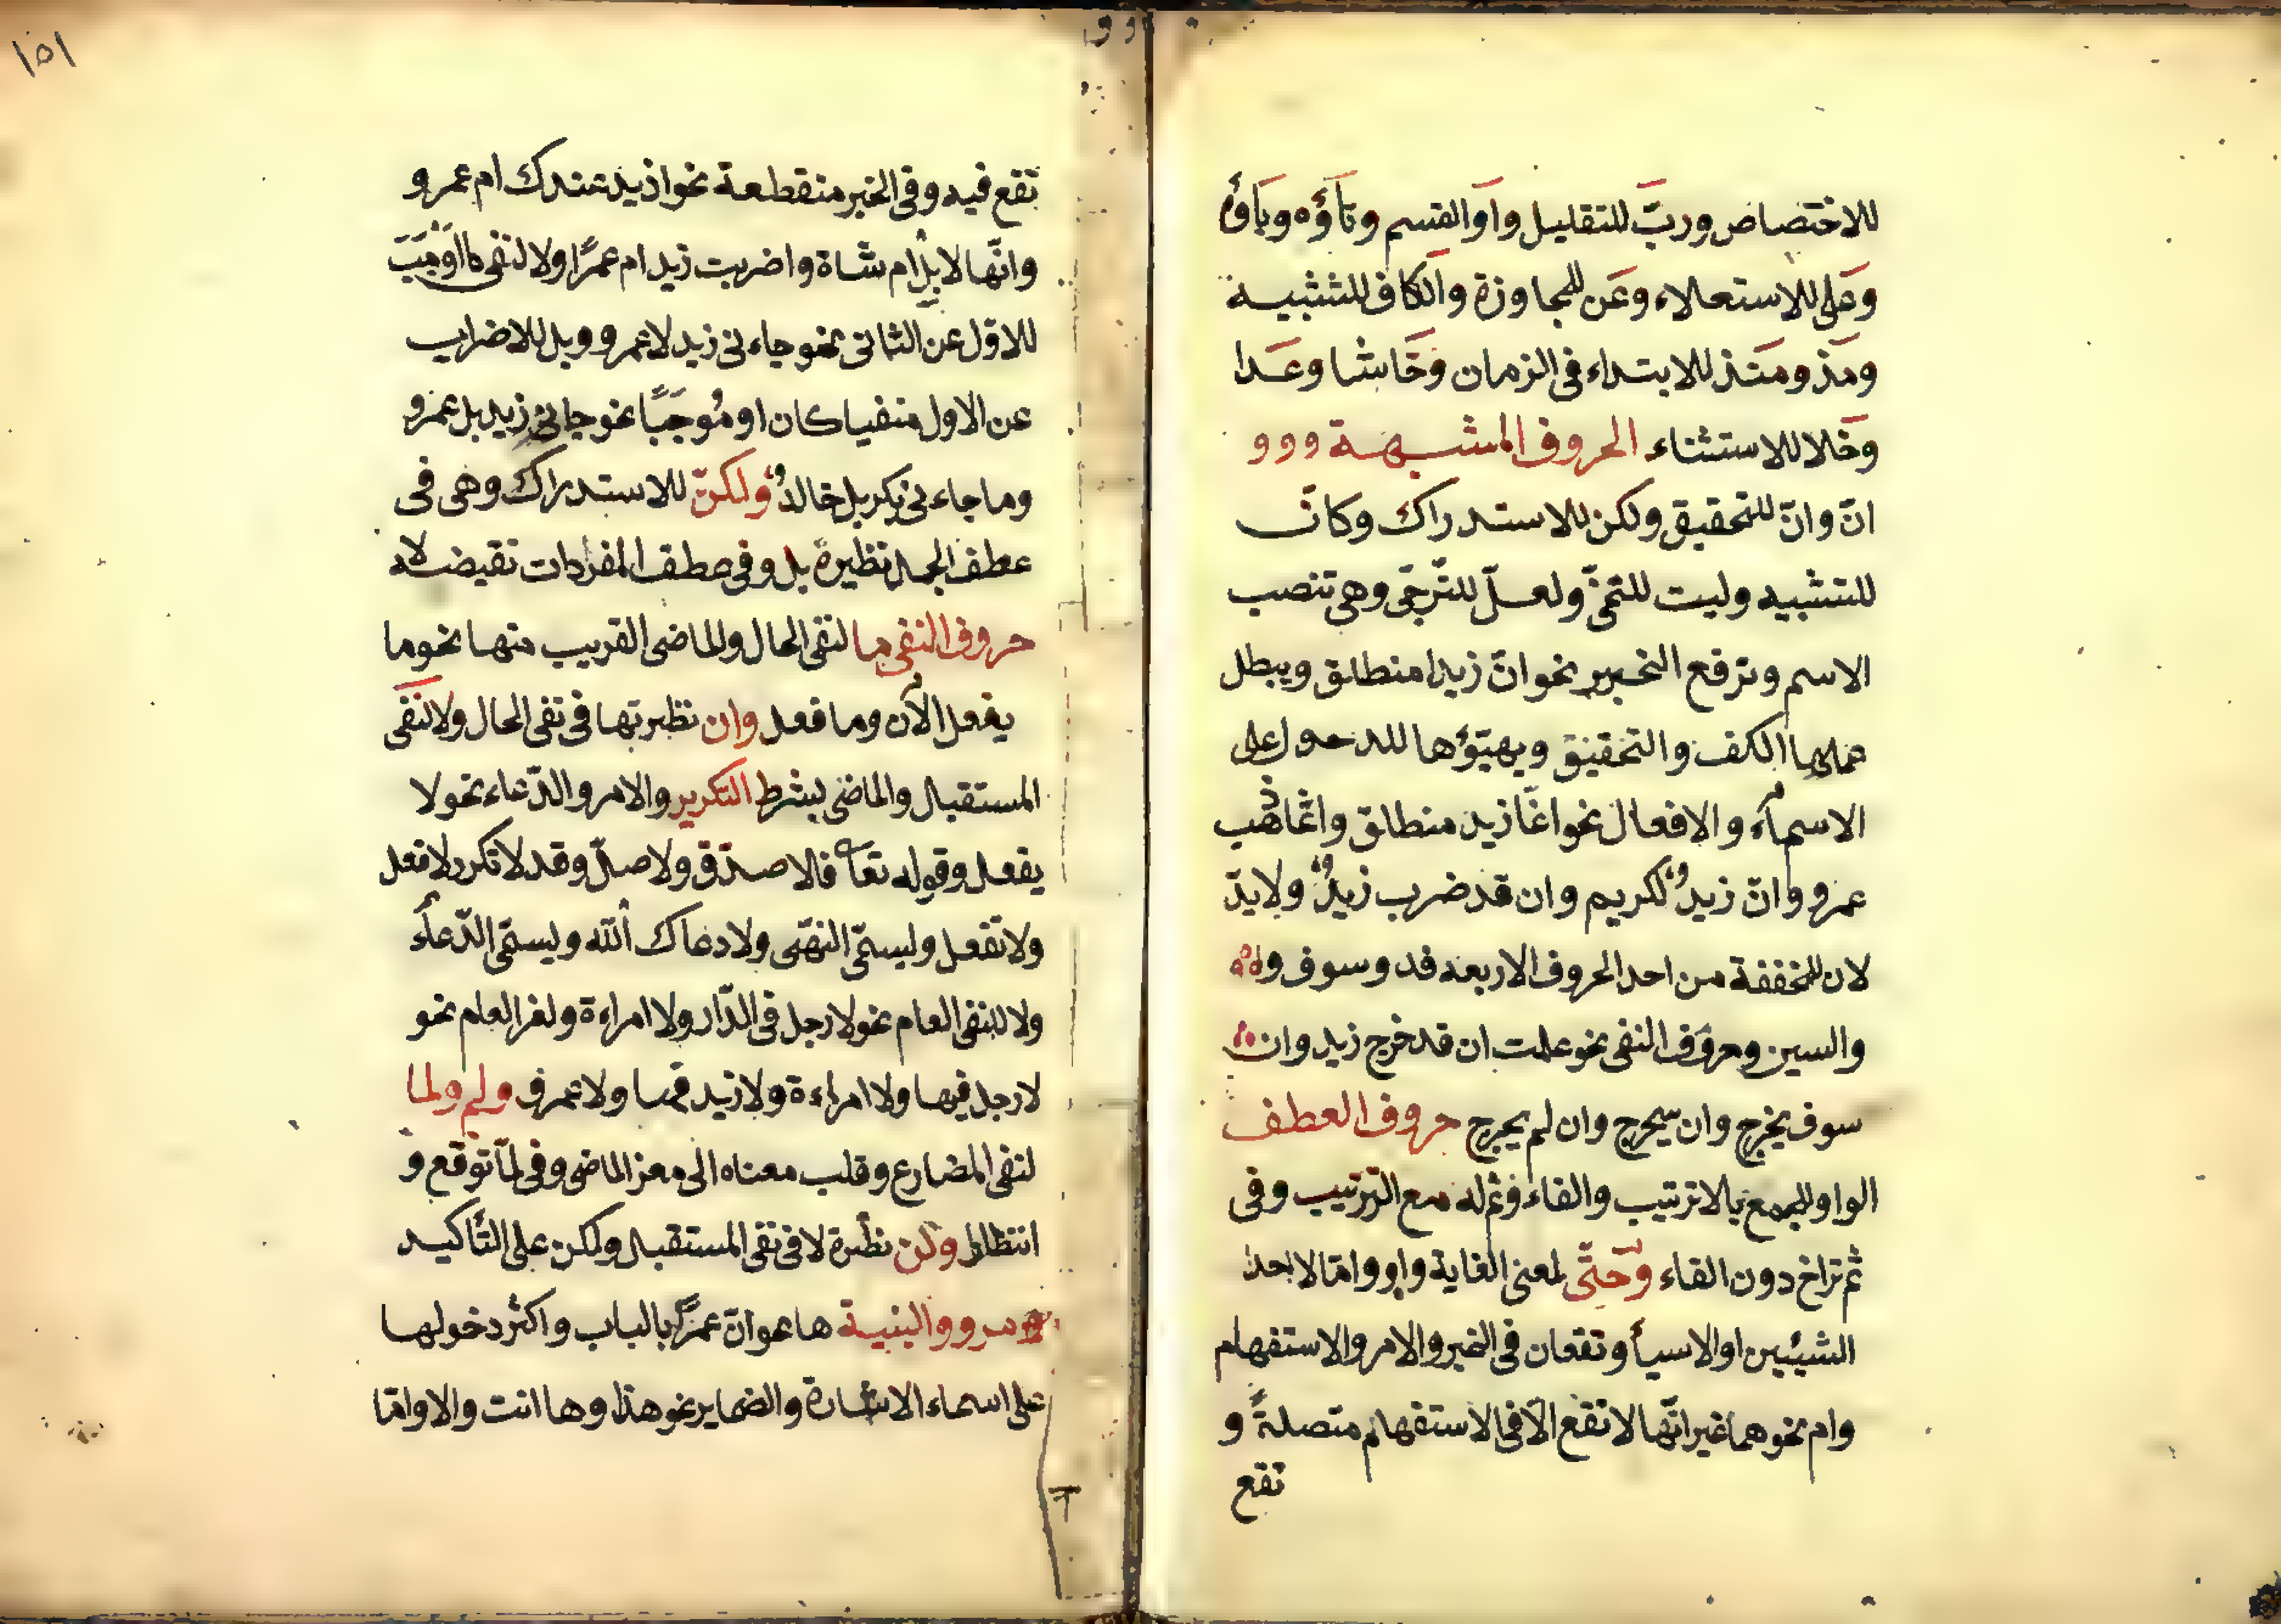 للاختصاص وربّ للتقليل واو القسم وتاؤه وباؤه
وعلى للاستعلاء وعن للمجاوزة والكاف للتشبيه
ومذ ومنذ للابتداء فى الزمان وحاشا وعدا
وخلا للاستثناء الحروف المشبهة
انّ وانّ للتحقيق ولكن للاستدراك وكانّ
للتشبيه وليت للتمنّى ولعلّ للتّرجّى وهى تنصب
الاسم وترفع الخبر نحو انّ زيدا منطلق ويبطل
عملها الكف والتخفيف ويهيّؤها للدخول على
الاسماء والافعال نحو انّما زيد منطلق وانّما ذهب
عمرو وانّ زيدٌ لكريم وان قد ضرب زيدٌ ولابدّ
لان المخففة من احد الحروف الاربعه قد وسوف
والسين وحروف النفى نحو علمت ان قد خرج زيد وان
سوف يخرج وان سيخرج وان لم يخرج حروف العطف
الواو للجمع بلا ترتيب والفاء وثم له مع الترتيب وفى
ثم تراخ دون الفاء وحتّى لمعنى الغاية واو وامّا لاحد
الشيئين او الاسيأ وتقعان فى الخبر والامر والاستفهام
وام نحوهما غير انّها لا تقع الّا فى الاستفهام متصلةً و
تقع
١٥١
تقع فيه وفى الخبر منقطعة نحو ازيد عندك ام عمرو
وانّها لابل ام شاة واضربت زيد ام عمرًا ولا لنفى ما اوجبت
للاوّل عن الثانى نحو جاءنى زيد لا عمرو وبل للاضراب
عن الاول منفيا كان او مُوجَبًا نحو جانى زيد بل عمرو
وما جاءنى بكر بل خالدٌ ولكنّ للاستدراك وهى فى
عطف الجمل نظيرة بل وفى عطف المفردات نقيضة لا
حروف النفى ما لنفى الحال والماضى القريب منها نحو ما
يفعل الآن وما فعل وان نظيرتها فى نفى الحال ولا لنفى
المستقبل والماضى بشرط التكرير والامر والدّعاء نحو لا
يفعل وقوله تعا فلا صدّق ولا صلّ وقد لا تكرر لا فعل
ولا تفعل ويسمّى النهى ولا دعاك الله ويسمّى الدّعاء
ولا للنفى العام نحو لا رجل فى الدّار ولا امراءة ولغير العام نحو
لا رجل فيها ولا امراءة ولا زيد فيها ولا عمرو ولم ولما
لنفى المضارع وقلب معناه الى معنى الماضى وفى لمّا توقع و
انتظار ولن نظيرة لا فى نفى المستقبل ولكن على التّأكيد
ها نحو انّ عمرًا بالباب واكثر دخولها
على اسماء الاشارة والضماير نحو هذا وها انت والا واما